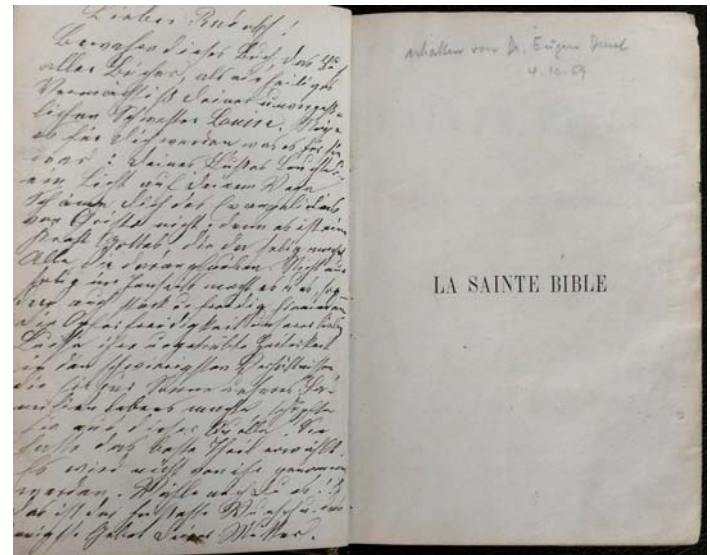 Lieber Rudolf!
Bewahre dieses Buch, das Buch
aller Bücher, als ein heiliges
Vermächtniß Deiner unvergeß-
lichen Schwester Louise. Möge
es für Dich werden was es für sie
war: Deines Fußes Leuchte u.
ein Licht auf Deinem Wege.
Schäme Dich des Evangeliums
von Christo nicht, denn es ist eine
Kraft Gottes, die da selig macht
Alle die daran glauben. Nicht nur
selig im Jenseits macht es u. es
auch stark u. freudig hienieden.
Die Opferfreudigkeit unserer lieben
Louise ihre ungetrübte Heiterkeit
in den schwierigsten Verhältnissen
die sie zur Sonne unseres Fa-
milien Lebens machte, schöpfte
sie aus dieser Quelle. Sie
hatte das beste Theil erwählt.
Es wird nicht von ihr genommen
werden. Wähle auch Du es!
das ist der heißeste Wunsch u. das
Gebet Deiner Mutter.
erhalten von Dr. Eugen
4.12.59
LA SAINTE BIBLE